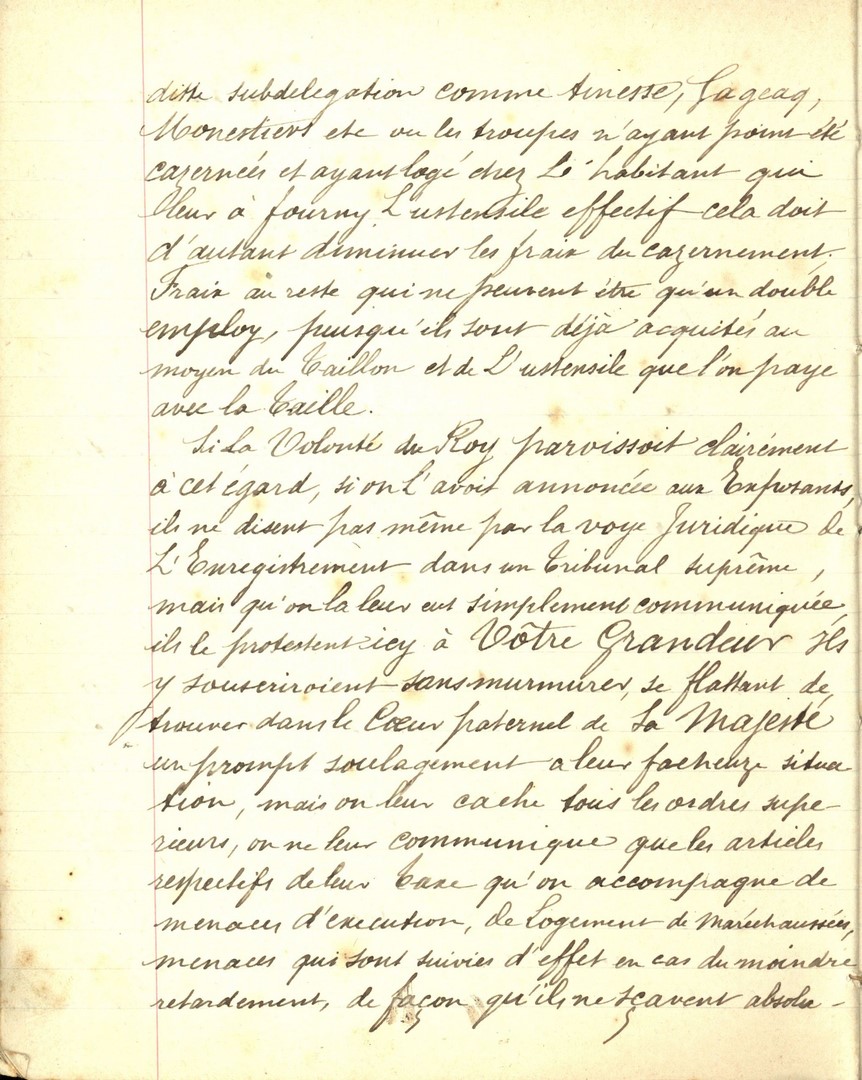 ditte subdelegation comme tinesse, Gageaq,
Monestiers etc ou les troupes n'ayant point été
cazernéés et ayant logé chez L'habitant qui
leur à fourny L'ustensile effectif cela doit
d'autant diminuer les fraix du cazernement.
Fraix au reste qui ne peuvent être qu'un double
employ, puisqu'ils sont déjà acquités au
moyen du Taillon et de L'ustensile que l'on paye
avec la Taille.
Si La Volonté du Roy paroissoit clairément
à cet égard, si on L'avoit annoncée aux Exposants,
ils ne disent pas même par la voye Juridique de
L'Enregistrement dans un tribunal suprême,
mais qu'on la leur eut simplement communiquée,
ils le protestent icy à Vôtre Grandeur ils
y souscriroient sans murmurer, se flattant de
trouver dans le Cœur paternel de Sa Majesté
un prompt soulagement a leur facheuze situa-
tion, mais on leur cache tous les ordres supe-
rieurs, on ne leur communique que les articles
respectifs de leur Taxe qu'on accompagne de
menaces d'execution, de Logement de Maréchaussées,
menaces qui sont suivies d'effet en cas du moindre
retardement, de façon qu'ils ne sçavent absolu-